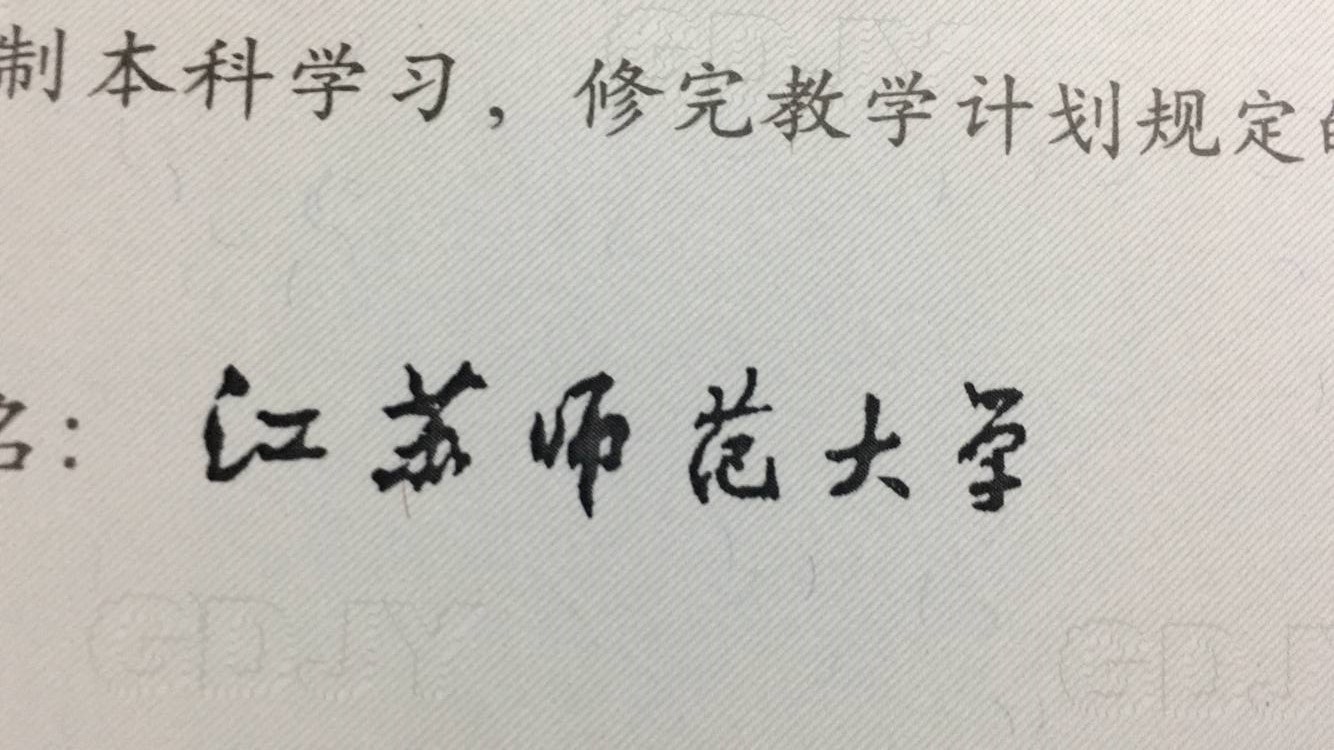 制本科学习，修完教学计划规定的
名：江苏师范大学